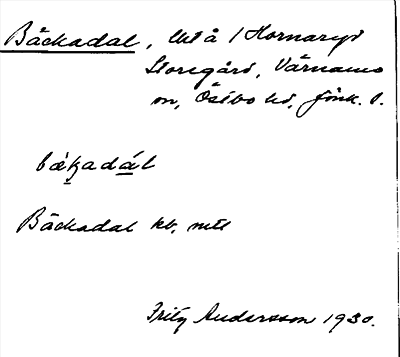 Bäckadal, lht å 1 Hornaryd
Storegård, Värnamo
sn, Östbo hd, Jönk. l.
bäkadál
Bäckadal kb, mtl
Fritz Andersson 1930.